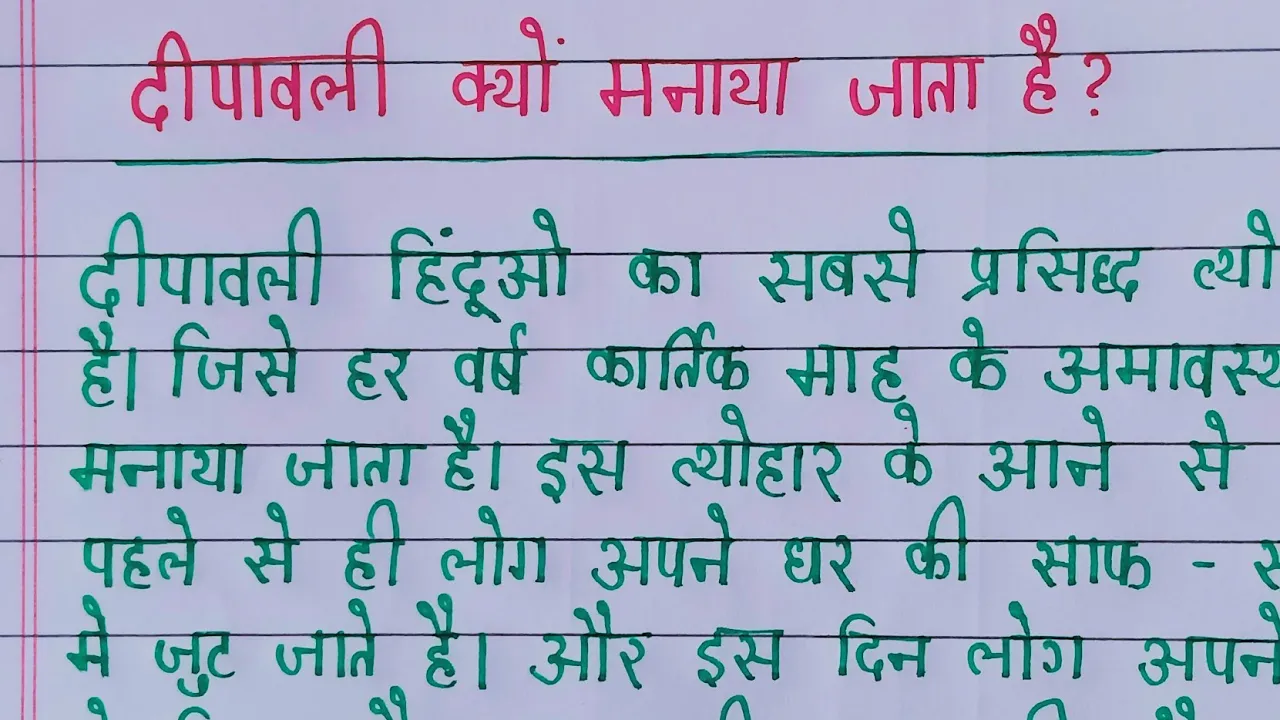 दीपावली क्यों मनाया जाता है?
दीपावली हिंदूओ का सबसे प्रसिद्ध त्यो
है। जिसे हर वर्ष कार्तिक माह के अमावस्य
मनाया जाता है। इस त्योहार के आने से
पहले से ही लोग अपने घर की साफ - स
मे जुट जाते है। और इस दिन लोग अपने